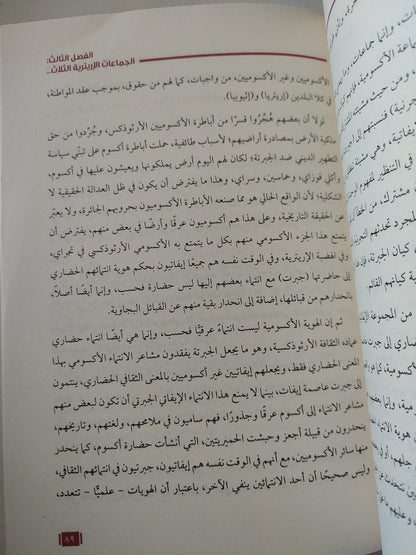 الفصل الثالث:
الجماعات الإريترية الثلاث..
الأكسوميين وغير الأكسوميين، من واجبات، كما لهم من حقوق، بموجب عقد المواطنة،
في كلا البلدين (إريتريا) و(إثيوبيا).
لولا أن بعضهم هُجِّرُوا قسرًا من أباطرة الأكسوميين الأرثوذكس، وجُرِّدوا من حق
ملكية الأرض بمصادرة أراضيهم؛ لأسباب طائفية، حملت أباطرة أكسوم على تبنّي سياسة
التطهير الديني ضد الجبرتة؛ لكان لهم اليوم أرض يملكونها ويعيشون عليها في أكسوم،
وأكلي قوزاي، وحماسين، وسراي، وهذا ما يفترض أن يكون في ظل العدالة الحقيقية لا
الشكلية؛ لأن الواقع الحالي هو مما صنعه الأباطرة الأكسوميون بحروبهم الجائرة، ولا يعبر
عن الحقيقة التاريخية، وعلى هذا هم أكسوميون عرقًا وأرضًا في بعض منهم، يفترض أن
يتمتع هذا الجزء الأكسومي منهم بكل ما يتمتع به الأكسومي الأرثوذكسي في تجراي،
وفي الهضبة الإريترية، وفي الوقت نفسه هم جميعًا إيفاتيون بحكم هوية انتمائهم الحضاري
إلى حاضرتها (جبرت) مع انتماء بعضهم إليها ليس حضارة فحسب، وإنما أيضًا أصلاً،
بانحدارهم من قبائلها، إضافة إلى انحدار بقية منهم عن القبائل البجاوية.
ثم إن الهوية الأكسومية ليست انتماءً عرقيًّا فحسب، وإنما هي أيضًا انتماء حضاري
عماده الثقافة الأرثوذكسية، وهو ما يجعل الجبرتة يفقدون مشاعر الانتماء الأكسومي بهذا
المعنى الحضاري فقط، ويجعلهم إيفاتيين غير أكسوميين بالمعنى الثقافي الحضاري، ينتمون
إلى جبرت عاصمة إيفات، بينما لا يمنع هذا الانتماء الإيفاتي الجبرتي أن تكون لبعض منهم
مشاعر الانتماء إلى أكسوم عرقًا وجذورًا، فهم ساميون في ملامحهم، ولغتهم، وتاريخهم،
ينحدرون من قبيلة أجعز وحبشت الحميريتين، التي أنشأت حضارة أكسوم، كما ينحدر
منها سائر الأكسوميين، مع أنهم في الوقت نفسه هم إيفاتيون، جبرتيون في انتمائهم الثقافي،
وليس صحيحًا أن أحد الانتمائين ينفي الآخر، باعتبار أن الهويات – علميًّا – تتعدد،
٨٩